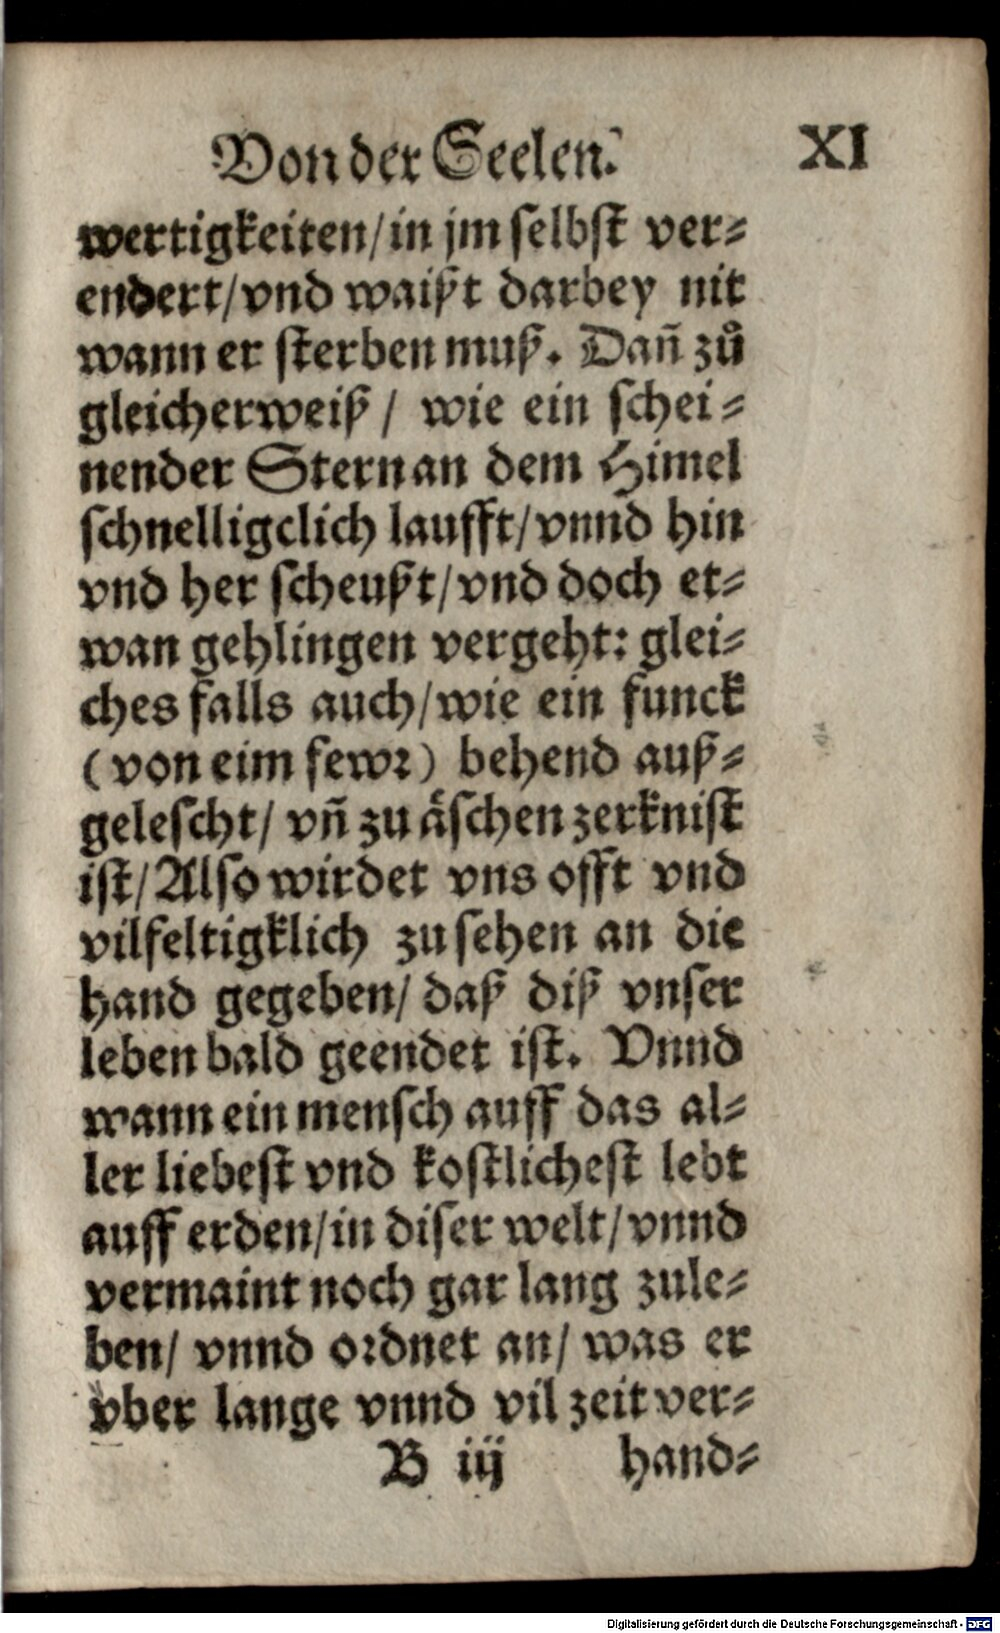 Von der Seelen. XI
wertigkeiten/in jm selbst ver⸗
endert/vnd waißt darbey nit
wann er sterben muß. Dañ zů
gleicherweiß / wie ein schei⸗
nender Stern an dem Himel
schnelligclich laufft/vnnd hin
vnd her scheußt/vnd doch et⸗
wan gehlingen vergeht: glei⸗
ches falls auch/wie ein funck
(von eim fewꝛ) behend auß⸗
gelescht/ vñ zu äschen zerknist
ist/Also wirdet vns offt vnd
vilfeltigklich zu sehen an die
hand gegeben/ daß diß vnser
leben bald geendet ist. Vnnd
wann ein mensch auff das al⸗
ler liebest vnd kostlichest lebt
auff erden/in diser welt/vnnd
vermaint noch gar lang zule⸗
ben/ vnnd oꝛdnet an/ was er
vber lange vnnd vil zeit ver⸗
B iij hand⸗
Digitalisierung gefördert durch die Deutsche Forschungsgemeinschaft - DFG